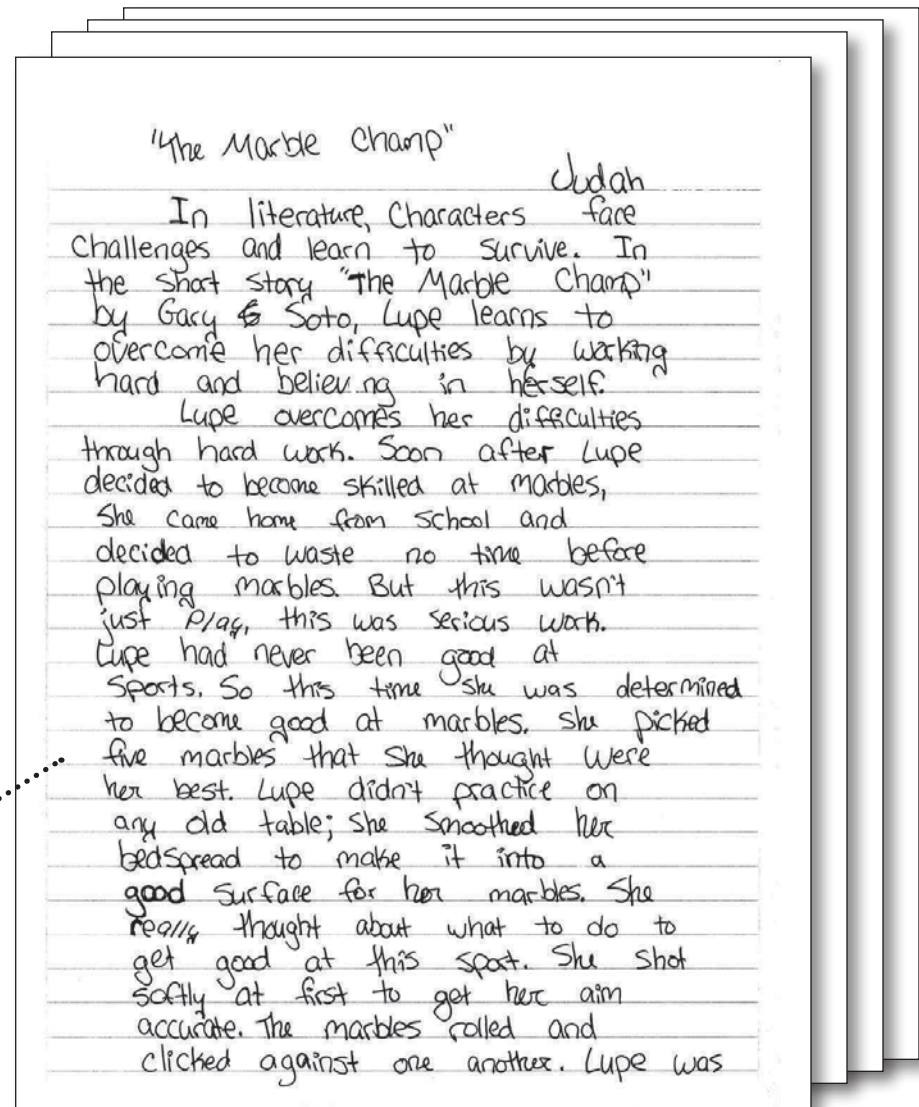 "The Marble Champ"
Judah
In literature, Characters face
Challenges and learn to survive. In
the short story "The Marble Champ"
by Gary Soto, Lupe learns to
overcome her difficulties by working
hard and believing in herself.
Lupe overcomes her difficulties
through hard work. Soon after Lupe
decided to become skilled at marbles,
She came home from school and
decided to waste no time before
playing marbles. But this wasn't
just play, this was serious work.
Lupe had never been good at
Sports. So this time she was determined
to become good at marbles. She picked
five marbles that she thought were
her best. Lupe didn't practice on
any old table; she smoothed her
bedspread to make it into a
good surface for her marbles. She
really thought about what to do to
get good at this sport. She shot
softly at first to get her aim
accurate. The marbles rolled and
clicked against one another. Lupe was